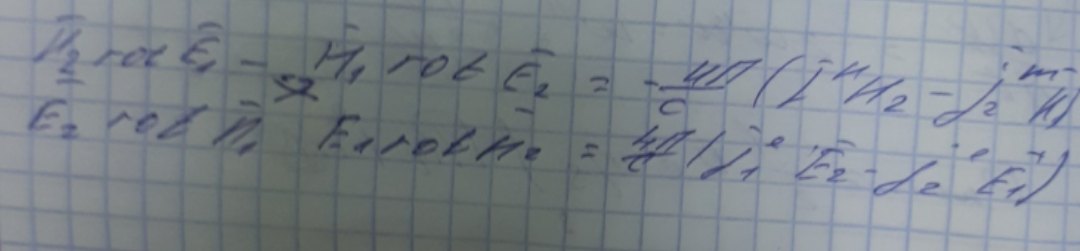 H̄₂ rot Ē₁ - H̄₁ rot Ē₂ = - 4π/c (j̄ᵐH₂ - j̄₂ᵐ H̄₁)
Ē₂ rot H̄₁ E₁ rot H̄₂ = 4π/c (j̄₁ᵉ Ē₂ - j̄₂ᵉ Ē₁)